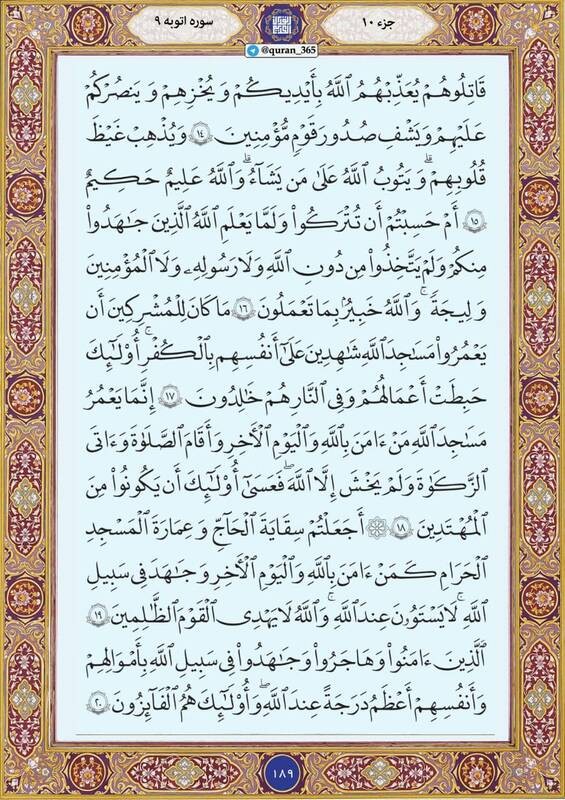 جزء ۱۰
سوره التوبه ۹
@quran_365
قَاتِلُوهُمْ يُعَذِّبْهُمُ ٱللَّهُ بِأَيْدِيكُمْ وَيُخْزِهِمْ وَيَنصُرْكُمْ
عَلَيْهِمْ وَيَشْفِ صُدُورَ قَوْمٍ مُّؤْمِنِينَ ١٤ وَيُذْهِبْ غَيْظَ
قُلُوبِهِمْ ۗ وَيَتُوبُ ٱللَّهُ عَلَىٰ مَن يَشَآءُ ۗ وَٱللَّهُ عَلِيمٌ حَكِيمٌ
١٥ أَمْ حَسِبْتُمْ أَن تُتْرَكُوا۟ وَلَمَّا يَعْلَمِ ٱللَّهُ ٱلَّذِينَ جَـٰهَدُوا۟
مِنكُمْ وَلَمْ يَتَّخِذُوا۟ مِن دُونِ ٱللَّهِ وَلَا رَسُولِهِۦ وَلَا ٱلْمُؤْمِنِينَ
وَلِيجَةً ۚ وَٱللَّهُ خَبِيرٌۢ بِمَا تَعْمَلُونَ ١٦ مَا كَانَ لِلْمُشْرِكِينَ أَن
يَعْمُرُوا۟ مَسَـٰجِدَ ٱللَّهِ شَـٰهِدِينَ عَلَىٰٓ أَنفُسِهِم بِٱلْكُفْرِ ۚ أُو۟لَـٰٓئِكَ
حَبِطَتْ أَعْمَـٰلُهُمْ وَفِى ٱلنَّارِ هُمْ خَـٰلِدُونَ ١٧ إِنَّمَا يَعْمُرُ
مَسَـٰجِدَ ٱللَّهِ مَنْ ءَامَنَ بِٱللَّهِ وَٱلْيَوْمِ ٱلْـَٔاخِرِ وَأَقَامَ ٱلصَّلَوٰةَ وَءَاتَى
ٱلزَّكَوٰةَ وَلَمْ يَخْشَ إِلَّا ٱللَّهَ ۖ فَعَسَىٰٓ أُو۟لَـٰٓئِكَ أَن يَكُونُوا۟ مِنَ
ٱلْمُهْتَدِينَ ١٨ ۞ أَجَعَلْتُمْ سِقَايَةَ ٱلْحَآجِّ وَعِمَارَةَ ٱلْمَسْجِدِ
ٱلْحَرَامِ كَمَنْ ءَامَنَ بِٱللَّهِ وَٱلْيَوْمِ ٱلْـَٔاخِرِ وَجَـٰهَدَ فِى سَبِيلِ
ٱللَّهِ ۚ لَا يَسْتَوُۥنَ عِندَ ٱللَّهِ ۗ وَٱللَّهُ لَا يَهْدِى ٱلْقَوْمَ ٱلظَّـٰلِمِينَ ١٩
ٱلَّذِينَ ءَامَنُوا۟ وَهَاجَرُوا۟ وَجَـٰهَدُوا۟ فِى سَبِيلِ ٱللَّهِ بِأَمْوَٰلِهِمْ
وَأَنفُسِهِمْ أَعْظَمُ دَرَجَةً عِندَ ٱللَّهِ ۚ وَأُو۟لَـٰٓئِكَ هُمُ ٱلْفَآئِزُونَ ٢٠
۱۸۹